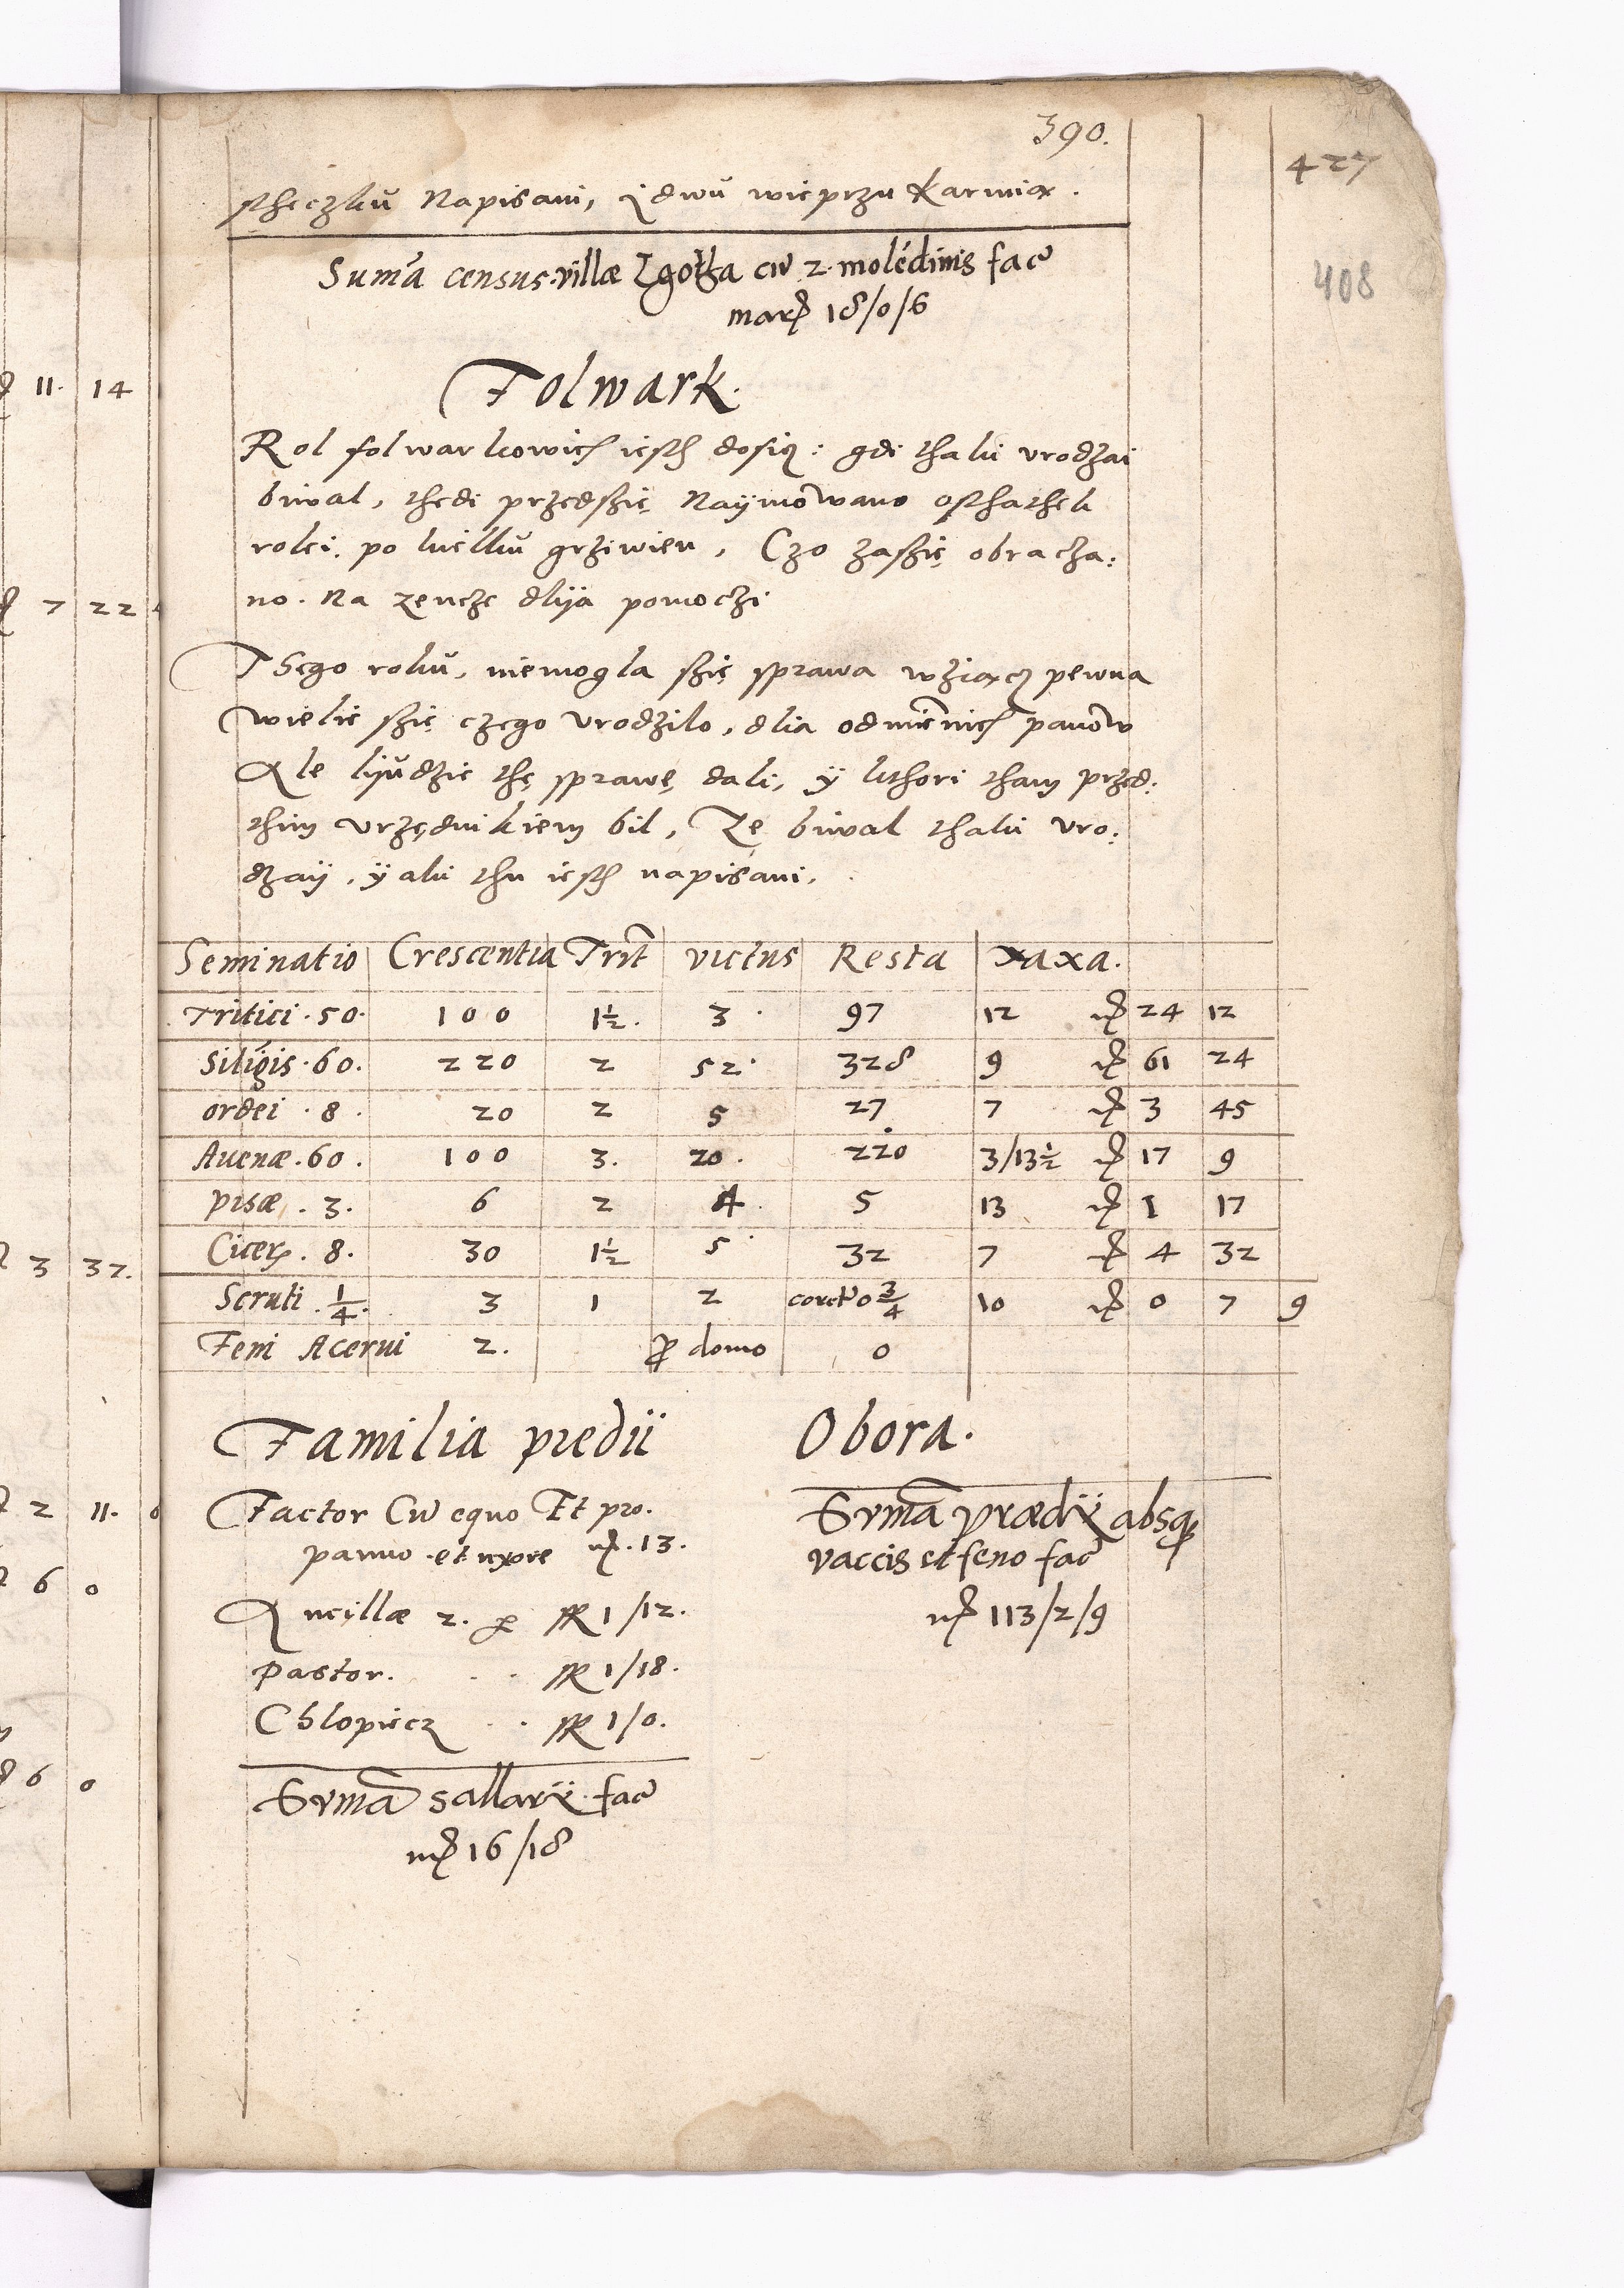 390.
427
408
stheczku Napisani, z dwu wieprzu Karmią.
Suma census villæ Zgołka cu 2 molédinis fac
marc 18/0/6
Folwark.
Rol folwarkowich iesth dosicz: gdi thaki vrodzai
biwal, thedi przedszię Naÿmowano osthathek
rolei. po kielku grziwien, Czo zaszię obracza:
no. Na zencze dlÿa pomoczi
Thego roku, niemogla szię sprawa wziącz pewna
wielie szię czego vrodzilo, dlia odmiennich panow
Ale lÿudzie thę sprawę dali, ÿ kthori tham przed:
thim vrzędnikiem bil, Ze biwal thaki vro:
dzaÿ, ÿaki thu iesth napisani.
Seminatio Crescentia Trit victus Resta Taxa.
Tritici . 50. 100 1½. 3. 97 12 mc 24 12
Siliginis . 60. 220 2 52. 328 9 mc 61 24
ordei . 8. 20 2 5 27 7 mc 3 45
Auenæ . 60. 100 3. 20. 220 3/13½ mc 17 9
pisæ . 3. 6 2 4. 5 13 mc 1 17
Cicer . 8. 30 1½ 5. 32 7 mc 4 32
Scruti . ¼. 3 1 2 coret 0¾ 10 mc 0 7 9
Feni Acerui 2. p domo 0
Familia predii Obora.
Factor Cu equo Et pro.
panno et uxore mc. 13.
Ancillæ 2. per mr 1/12.
Pastor. . . mr 1/18.
Chlopiecz . . mr 1/0.
Suma sallarÿ fac
mc 16/18
Suma prædÿ absq
vaccis et feno fac
mc 113/2/9
11. 14
7 22
3 32.
2 11.
6 0
6 0